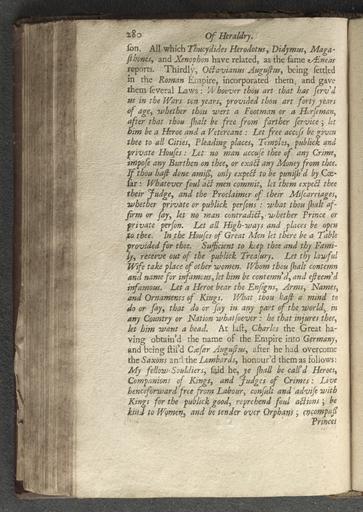 280 Of Heraldry.
son. All which Thucydides Herodotus, Didymus, Maga-
sthenes, and Xenophon have related, as the same Æneas
reports. Thirdly, Octavianus Augustus, being settled
in the Roman Empire, incorporated them, and gave
them several Laws: Whoever thou art that has serv'd
us in the Wars ten years, provided thou art forty years
of age, whether thou wert a Footman or a Horseman,
after that thou shalt be free from farther service; let
him be a Heroe and a Veterane: Let free access be given
thee to all Cities, Pleading places, Temples, publick and
private Houses: Let no man accuse thee of any Crime,
impose any Burthen on thee, or exact any Money from thee.
If thou hast done amiss, only expect to be punish'd by Cæ-
sar: Whatever foul act men commit, let them expect thee
their Judge, and the Proclaimer of their Miscarriages,
whether private or publick persons: what thou shalt af-
firm or say, let no man contradict, whether Prince or
private person. Let all High-ways and places be open
to thee. In the Houses of Great Men let there be a Table
provided for thee. Sufficient to keep thee and thy Fami-
ly, receive out of the publick Treasury. Let thy lawful
Wife take place of other women. Whom thou shalt contemn
and name for infamous, let him be contemn'd, and esteem'd
infamous. Let a Heroe bear the Ensigns, Arms, Names,
and Ornaments of Kings. What thou hast a mind to
do or say, that do or say in any part of the world, in
any Country or Nation whatsoever: he that injures thee,
let him want a head. At last, Charles the Great ha-
ving obtain'd the name of the Empire into Germany,
and being stil'd Cæsar Augustus, after he had overcome
the Saxons and the Lombards, honour'd them as follows:
My fellow-Souldiers, said he, ye shall be call'd Heroes,
Companions of Kings, and Judges of Crimes: Live
henceforward free from Labour, consult and advise with
Kings for the publick good, reprehend foul actions; be
kind to Women, and be tender over Orphans; encompass
Princes